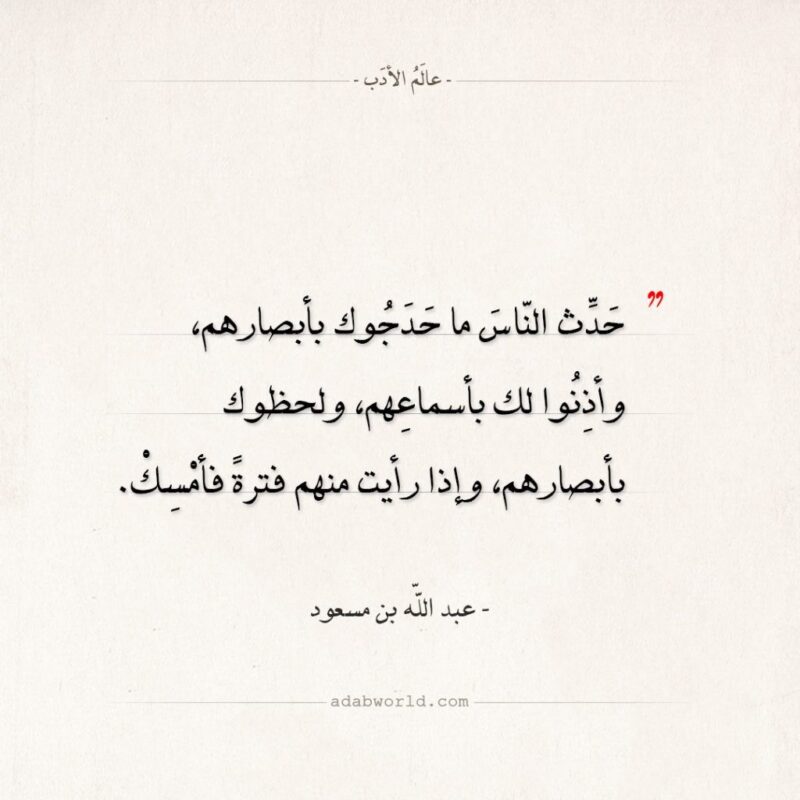 - عالَمُ الأدَب -
” حَدِّث النّاسَ ما حَدَجُوك بأبصارهم،
وأذِنُوا لك بأسماعِهم، ولحظوك
بأبصارهم، وإذا رأيت منهم فترةً فأمْسِكْ.
- عبد اللّه بن مسعود
adabworld.com